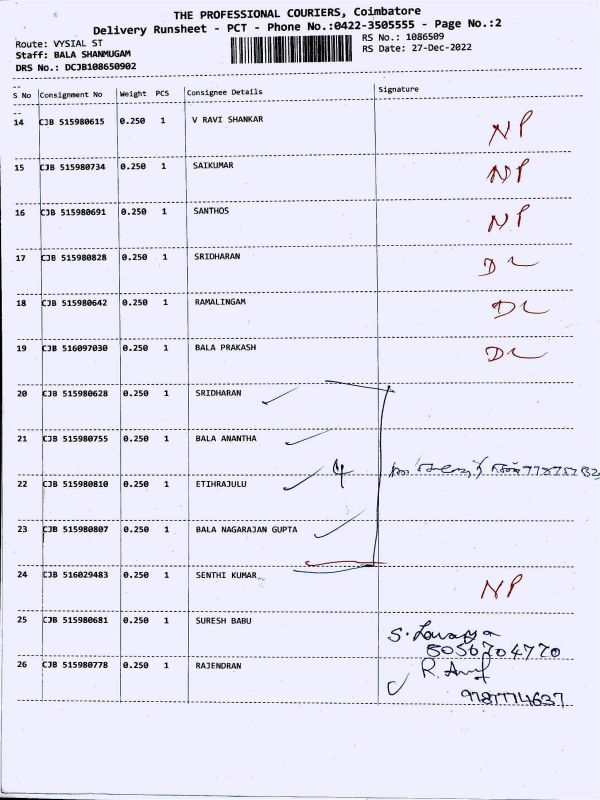 THE PROFESSIONAL COURIERS, Coimbatore
Delivery Runsheet - PCT - Phone No.:0422-3505555 - Page No.:2
Route: VYSIAL ST
RS No.: 1086509
Staff: BALA SHANMUGAM
RS Date: 27-Dec-2022
DRS No.: DCJB108650902
S No Consignment No Weight PCS Consignee Details Signature
14 CJB 515980615 0.250 1 V RAVI SHANKAR NP
15 CJB 515980734 0.250 1 SAIKUMAR NP
16 CJB 515980691 0.250 1 SANTHOS NP
17 CJB 515980828 0.250 1 SRIDHARAN DL
18 CJB 515980642 0.250 1 RAMALINGAM DL
19 CJB 516097030 0.250 1 BALA PRAKASH DL
20 CJB 515980628 0.250 1 SRIDHARAN
21 CJB 515980755 0.250 1 BALA ANANTHA
22 CJB 515980810 0.250 1 ETIHRAJULU 4
23 CJB 515980807 0.250 1 BALA NAGARAJAN GUPTA
24 CJB 516029483 0.250 1 SENTHI KUMAR NP
25 CJB 515980681 0.250 1 SURESH BABU S. Lavanya
8056704770
26 CJB 515980778 0.250 1 RAJENDRAN R.
9787774637